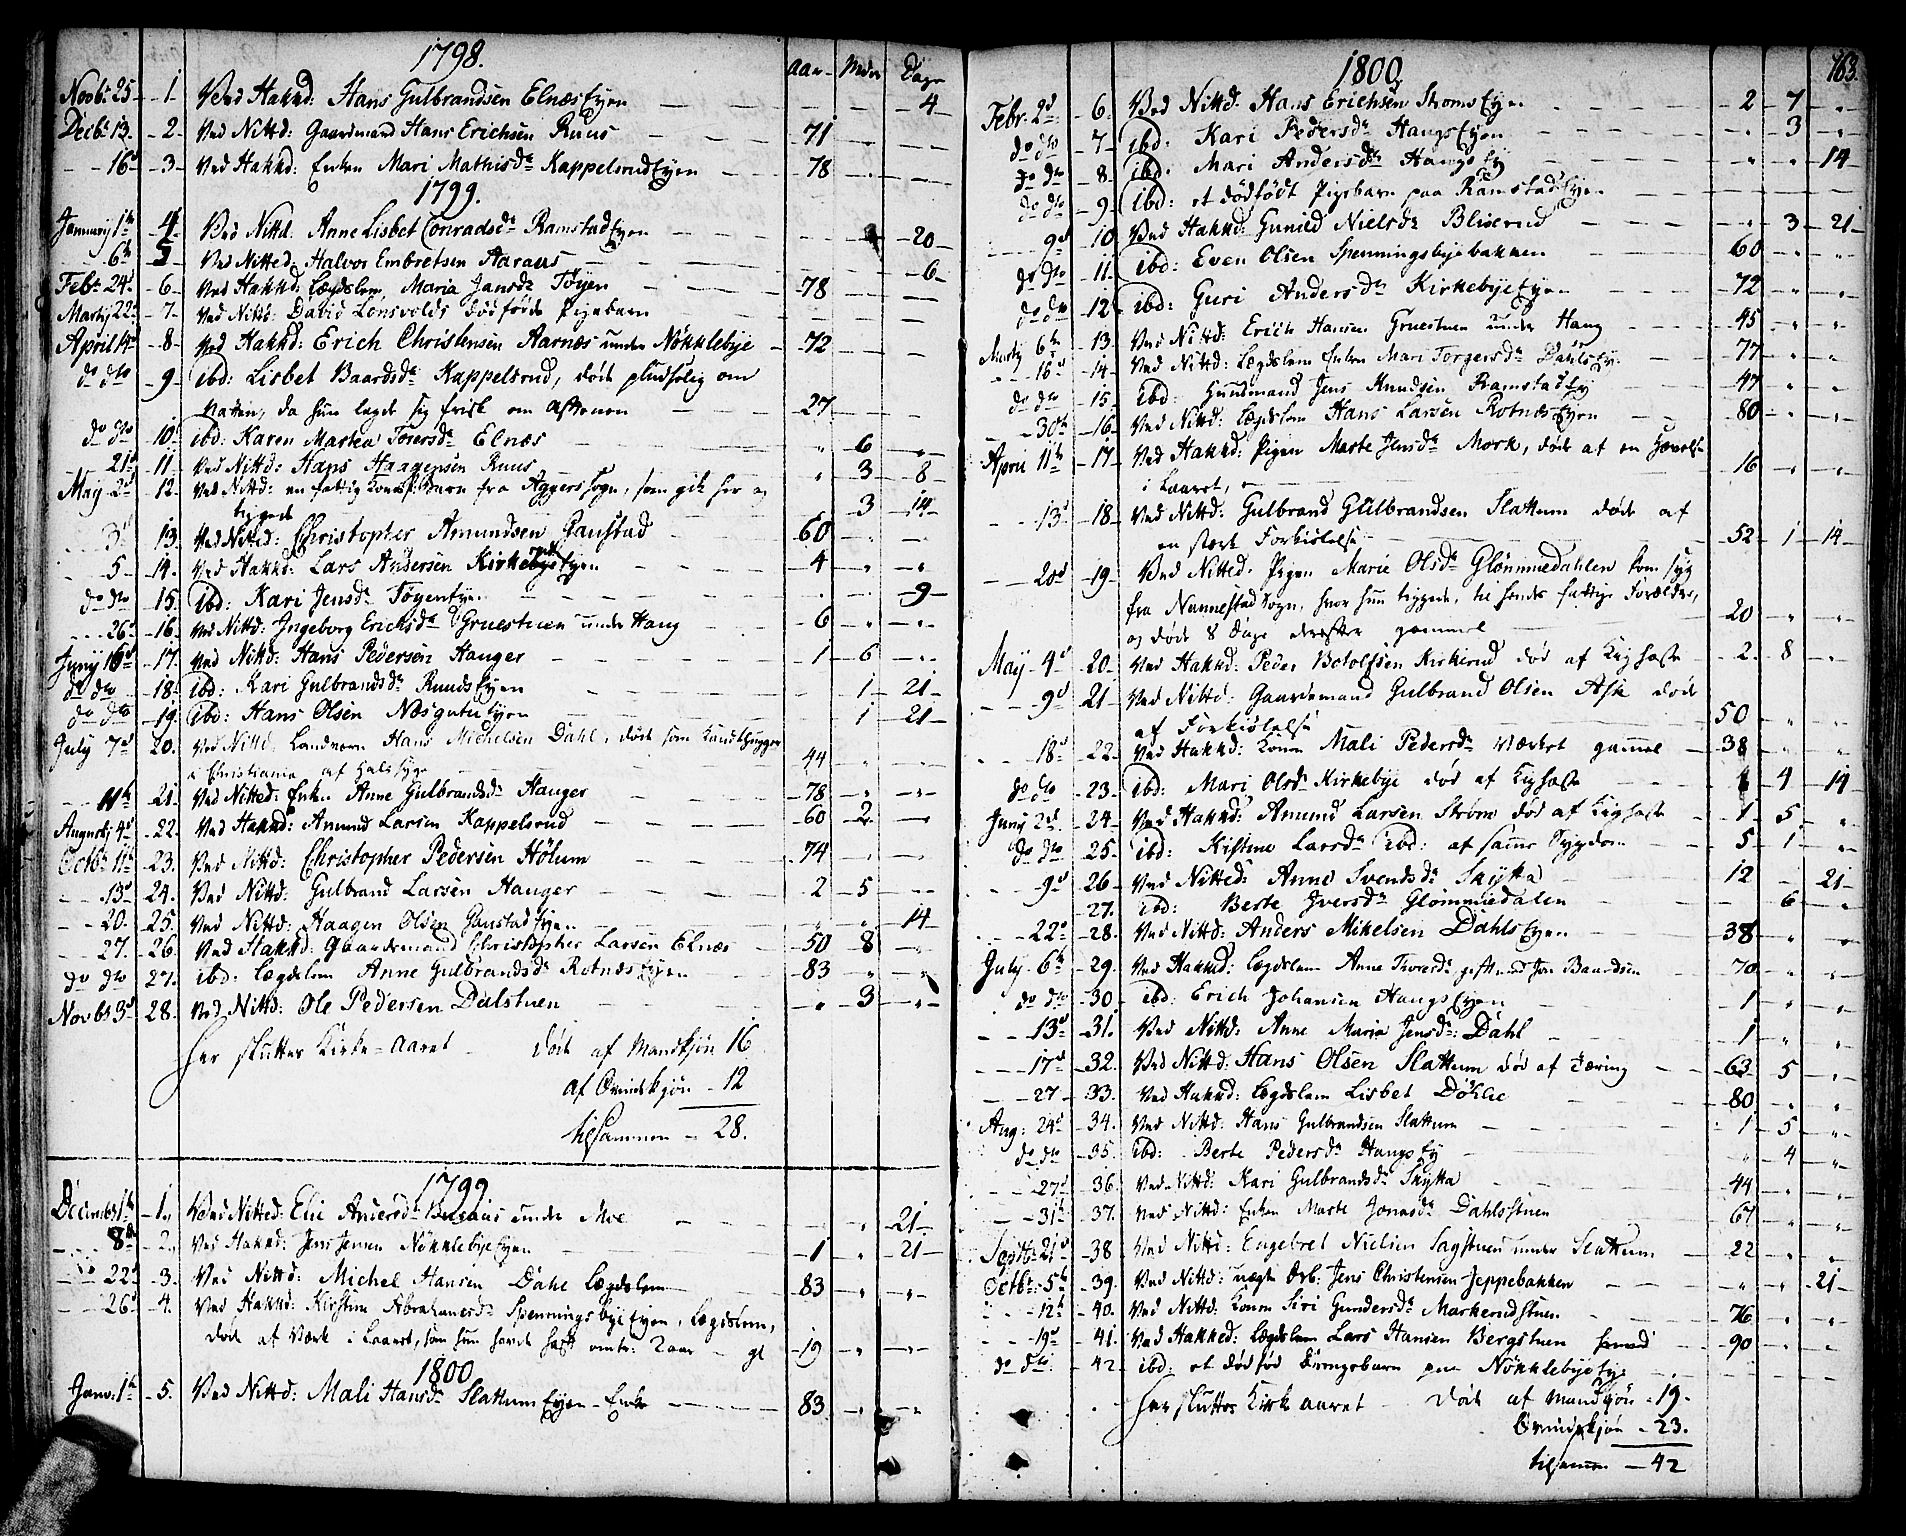 1798.
Aar Mdr Dage
Novbr 25 1 Ved Hakkd: Hans Gulbrandsen Elnæs Eyen 4
Decbr 13. 2. Ved Nittd: Gaardmand Hans Erichsen Ruus 71
16d 3 Ved Hakkd: Enken Mari Mathisdr Kappelsrud Eyen 78
1799.
Januarij 1te 4. Ved Nittd. Anne Lisbet Conradsdr Ramstad Eyen 20
6te 5 Ved Nitted: Halvor Embretsen Aaraas 6
Febr 24d 6 Ved Hakkd: Lægdslem Maria Jansdr Töyen 78
Martij 22de 7. Ved Nittd: David Lonsvolds dödfödt Pigebarn
April 14de 8 Ved Hakkd: Erich Christensen Aarnæs under Nökklebye 72
do dto 9 ibd: Lisbet Baardsdr Kappelsrud, döde pludselig om
Natten, da hun lagde sig frisk om Aftenen 27
do dto 10 ibd: Karen Marthea Toersdr Elnæs 6
21d 11 Ved Nittd: Hans Haagensen Ruus 3 8
May 2d 12 Ved Nittd: en fattig Kones Barn fra Aggers Sogn, som gik her og
tiggede 3 14
3d 13. Ved Nitted: Christopher Amundsen Gaustad 60
5 14. Ved Hakkd: Lars Andersen Kirkebye Eyen 4
do dto 15. ibd: Kari Jensdr Töyen Eyen 9
26d 16. Ved Nittd: Ingeborg Erichsdr Gruestuen under Haug 6
Junij 16d 17. Ved Nittd: Hans Pedersen Hauger 1 6
do dto 18. ibd: Kari Gulbrandsdr Ruuds Eyen 1 21
do dto 19. ibd: Hans Olsen Næsgutu Eyen 1 21
July 7d 20. Ved Nittd. Landværn Hans Michelsen Dahl, döde som
i Christiania af Halssyge 44
11te 21. Ved Nitted: Enken Anne Gulbrandsdr Hauger 78
Augustij 4d 22. Ved Hakkd: Amund Larsen Kappelsrud 60 2
Octbr 11te 23. Ved Nittd: Christopher Pedersen Hölum 74
13d 24. Ved Nittd: Gulbrand Larsen Hauger 2 5
20. 25. Ved Nittd: Haagen Olsen Gaustad Eyen 14
27. 26. Ved Hakkd: Gaardemand Christopher Larsen Elnæs 50 8
do dto 27. ibd: Lægdslem Anne Gulbrandsdr Rotnæs Eyen 83
Novbr 3d 28. Ved Nittd: Ole Pedersen Dalstuen 3
Her slutter Kirke-Aaret Döde af Mandkjön 16
af Qvindekjön 12
tilsammen 28.
1799
Decembr 1te 1. Ved Nitted: Elie Andersdr under Moe 21
8de 2. Ved Hakkd: Jens Jensen Nökklebye Eyen 1 21
22d 3. Ved Nittd: Michel Hansen Dahl Lægdslem 83
26d 4. Ved Hakkd: Kirstine Abrahamsdr Spenningsbye Eyen, Lægdslem,
döde af Værk i Laaret, som hun havde havt omtr: 2 aar gl 19
1800
Janr: 1te 5. Ved Nittd: Mali Hansdr Slattum Eyen Enke 83
163.
1800
Febr: 2d 6. Ved Nittd: Hans Erichsen Stroms Eyen 2 7
do dto 7. ibd: Kari Pedersdr Haugs Eyen 3
do dto 8. ibd. Mari Andersdr Haugs Ey 14
do dto 9. ibd: et dödfödt Pigebarn paa Ramstad Eyen
9d 10 Ved Hakkd: Gunild Nielsdr Bliserud 3 21
do dto 11. ibd: Even Olsen Spenningsbyebakken 60
do dto 12. ibd: Guri Andersdr Kirkebye Eyen 72
Martij 6te 13. Ved Nittd: Erich Hansen Gruestuen under Haug 45
16d 14. Ved Nittd: Lægdslem Enken Mari Torgersdr Dahls Ey 77
do dto 15. ibd: Huusmand Jens Knudsen Ramstad Ey 47
30te 16. Ved Nittd: Lægdslem Hans Larsen Rotnæs Eyen 80
April 11te 17. Ved Hakkd: Pigen Marte Jensdr Mork, döde af en Hævelse
i Laaret, 16
13d 18. Ved Nittd: Gulbrand Gulbrandsen Slattum döde af
en stærk Forkiölelse 52 1 14
20d 19 Ved Nitted. Pigen Marie Olsdr Glömmedahlen kom syg
fra Nannestad Sogn, hvor hun tiggede, til hendes fattige Forældre,
og döde 8 Dage derefter gammel 20
Maij 4d 20. Ved Hakkd: Peder Botolfsen Kirkerud död af Kighoste 2. 8
9d 21 Ved Nittd: Gaardemand Gulbrand Olsen Ask döde
af Forkiölelse 50
18d 22. Ved Hakkd: Konen Mali Pedersdr Wærket gammel 38
do dto 23. ibd: Mari Olsdr Kirkebye död af Kighoste 4 14
Junij 2d 24. Ved Hakkd: Amund Larsen Ström död af Kighoste 1 5
do dto 25. ibd: Kistine Larsdr ibd: af samme Sygdom 5 1
9d 26 Ved Nitted: Anne Svendsdr Skytta 12 21
27. ibd: Berte Iversdr Glömmedalen 6
22d 28. Ved Nittd: Anders Mikelsen Dahls Eyen 38
July 6te 29. Ved Hakkd: Lægdslem Anne Thoresdr gift med Jon Baardsen 70
do dto 30 ibd: Erich Johansen Haugs Eyen 1
13d 31. Ved Nittd: Anne Maria Jensdr: Dahl 1
17d 32. Ved Nittd: Hans Olsen Slattum död af Tæring 63 5
27 33. Ved Hakkd: Lægdslem Lisbet Döhlie 80
Aug: 24d 34. Ved Nittd: Hans Gulbrandsen Slattum 1 5
do dto 35. ibd: Berte Pedersdr Haugs Ey 4
27d 36. Ved Nittd: Kari Gulbrandsdr Skytta 44
31te 37. Ved Nittd: Enken Marte Jonasdr Dahlsstuen 67
Septbr 21d 38 Ved Nittd: Engebret Nielsen Sagstuen under Slattum 22
Octbr: 5te 39. Ved Nittd: uægte Drb. Jens Christensen Jeppebakken 21
12te 40. Ved Nittd: Konen Siri Gundersdr Markerudstuen 76
19d 41. Ved Hakked: Lægdslem Lars Hansen Bergstuen 90
do dto 42. ibd: et dödföd Drengebarn paa Nökklebye Eye
Her slutter Kirke Aaret Döde af Mandkjön 19
Qvindekjön 23.
tilsammen 42